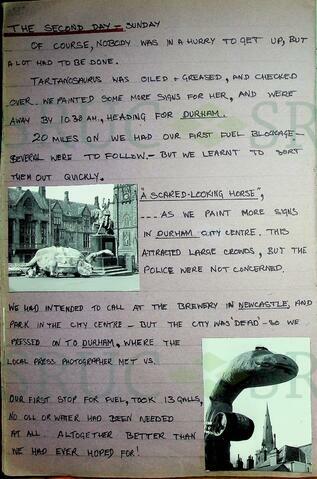 THE SECOND DAY - SUNDAY
OF COURSE, NOBODY WAS IN A HURRY TO GET UP, BUT
A LOT HAD TO BE DONE.
TARTANOSAURUS WAS OILED + GREASED, AND CHECKED
OVER. WE PAINTED SOME MORE SIGNS FOR HER, AND WERE
AWAY BY 10.30 AM, HEADING FOR DURHAM.
20 MILES ON WE HAD OUR FIRST FUEL BLOCKAGE -
SEVERAL WERE TO FOLLOW. - BUT WE LEARNT TO SORT
THEM OUT QUICKLY.
"A SCARED-LOOKING HORSE",
---- AS WE PAINT MORE SIGNS
IN DURHAM CITY CENTRE. THIS
ATTRACTED LARGE CROWDS, BUT THE
POLICE WERE NOT CONCERNED.
WE HAD INTENDED TO CALL AT THE BREWERY IN NEWCASTLE, AND
PARK IN THE CITY CENTRE - BUT THE CITY WAS 'DEAD' - SO WE
PRESSED ON TO DURHAM, WHERE THE
LOCAL PRESS PHOTOGRAPHER MET US.
OUR FIRST STOP FOR FUEL, TOOK 13 GALLS,
NO OIL OR WATER HAD BEEN NEEDED
AT ALL. ALTOGETHER BETTER THAN
WE HAD EVER HOPED FOR!